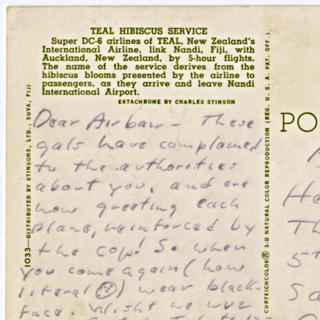 TEAL HIBISCUS SERVICE
Super DC-6 airlines of TEAL, New Zealand's
International Airline, link Nandi, Fiji, with
Auckland, New Zealand, by 5-hour flights.
The name of the service derives from the
hibiscus blooms presented by the airline to
passengers, as they arrive and leave Nandi
International Airport.
EKTACHROME BY CHARLES STINSON
Dear Airbair - These
gals have complained
to the authorities
about you, and are
now greeting each
plane, reinforced by
the cop! So when
you come again (how
literal) wear black-
face. Wisht we wuz
1033—DISTRIBUTED BY STINSONS, LTD., SUVA, FIJI
CURTEICHCOLOR® 3-D NATURAL COLOR REPRODUCTION (REG. U. S. A. PAT. OFF.)
PO
He
Th
5
Sa